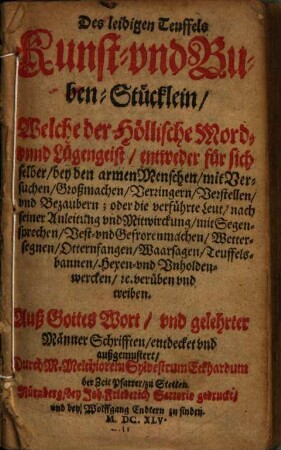 Des leidigen Teuffels
Kunst- vnd Bu-
ben-Stücklein /
Welche der Höllische Mord-
vnnd Lügengeist / entweder für sich
selber / bey den armen Menschen / mit Ver-
suchen / Großmachen / Verringern / Verstellen /
vnd Bezaubern ; oder die verführte Leut / nach
seiner Anleitung vnd Mitwirckung / mit Segen-
sprechen / Vest- vnd Gefrorenmachen / Wetter-
segnen / Otternfangen / Waarsagen / Teuffels-
bannen / Hexen- vnd Vnholden-
wercken / ꝛc. verüben vnd
treiben.
Auß Gottes Wort / vnd gelehrter
Männer Schrifften / entdecket vnd
außgemustert /
Durch M. Melchiorem Sylvestrum Eckhardum
der Zeit Pfarrer / zu Stetten.
Nürnberg / bey Joh. Friederich Sartorio gedruckt /
vnd bey / Wolffgang Endtern zu finden.
M. DC. XLV.